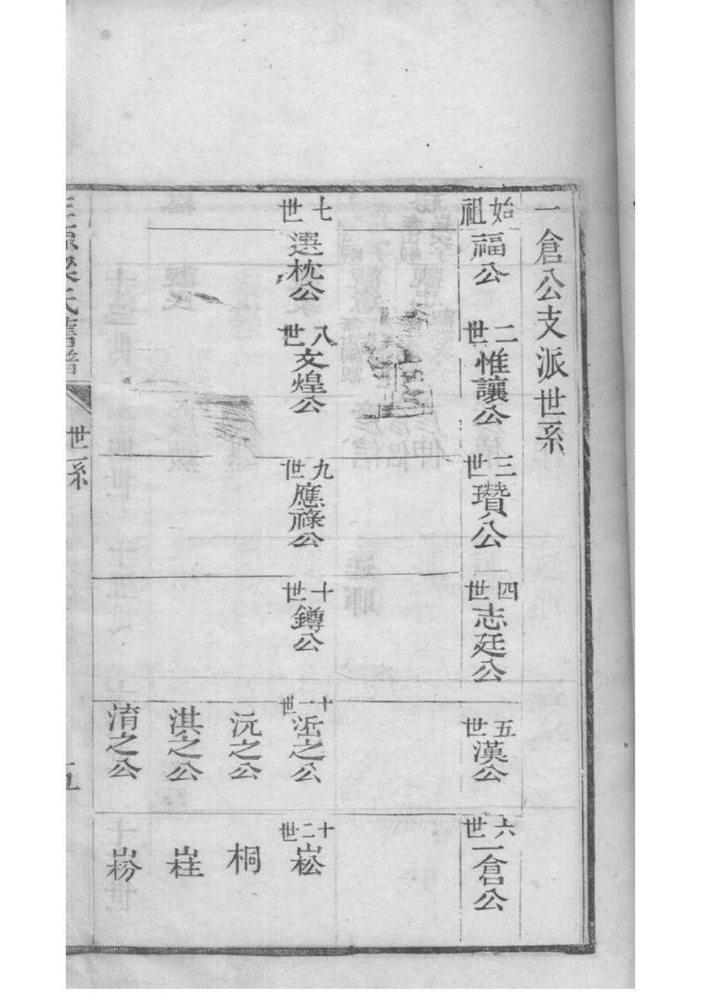 一倉公支派世系
始祖 福公
二世 惟讓公
三世 瓚公
四世 志廷公
五世 漢公
六世 一倉公
七世 選枕公
八世 文煌公
九世 應祿公
十世 鐏公
十一世 洷之公
十二世 崧
沅之公
桐
淇之公
㟂
淯之公
㟗
氏舊譜
世系
五